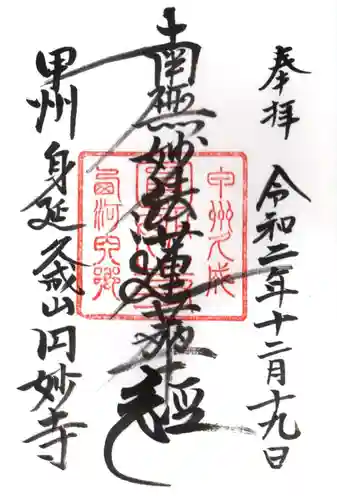 奉拝
令和二年十二月十九日
南無妙法蓮華経
甲州
身延久成山円妙寺